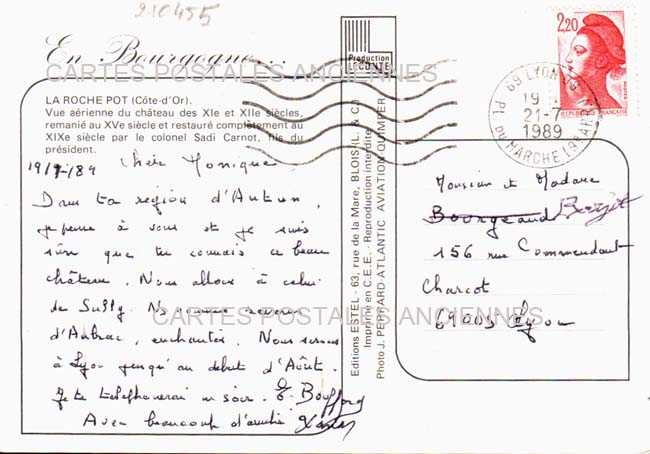 210455
En Bourgogne...
CARTES POSTALES ANCIENNES
LA ROCHE POT (Côte-d'Or).
Vue aérienne du château des XIe et XIIe siècles,
remanié au XVe siècle et restauré complètement au
XIXe siècle par le colonel Sadi Carnot, fils du
président.
19/7/89 Chère Monique
Dans ta région d'Autun,
je pense à vous et je suis
sûre que tu connais ce beau
château. Nous allons à celui
de Sully. Ns sommes revenus
d'Aubrac, enchantés. Nous serons
à Lyon jusqu'au début d'Août.
Je te telephonerai un soir.
Avec beaucoup d'amitié
CARTES POSTALES ANCIENNES
Production
LECONTE
Editions ESTEL - 63, rue de la Mare, BLOIS (L. & C.)
Imprimé en C.E.E. - Reproduction interdite
Photo J. PERHARD-ATLANTIC AVIATION-QUIMPER
2,20
REPUBLIQUE FRANÇAISE
69 LYON 03
19 H
21-7
1989
PL DU MARCHE (RHÔNE)
Monsieur et Madame
Bourgeaud
156 rue Commandant
Charcot
69005 Lyon